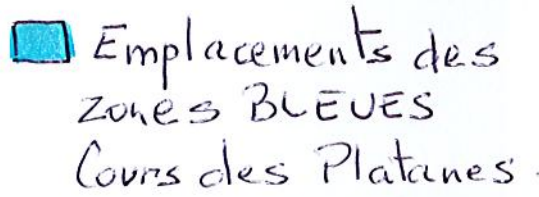 Emplacements des
zones BLEUES
Cours des Platanes.